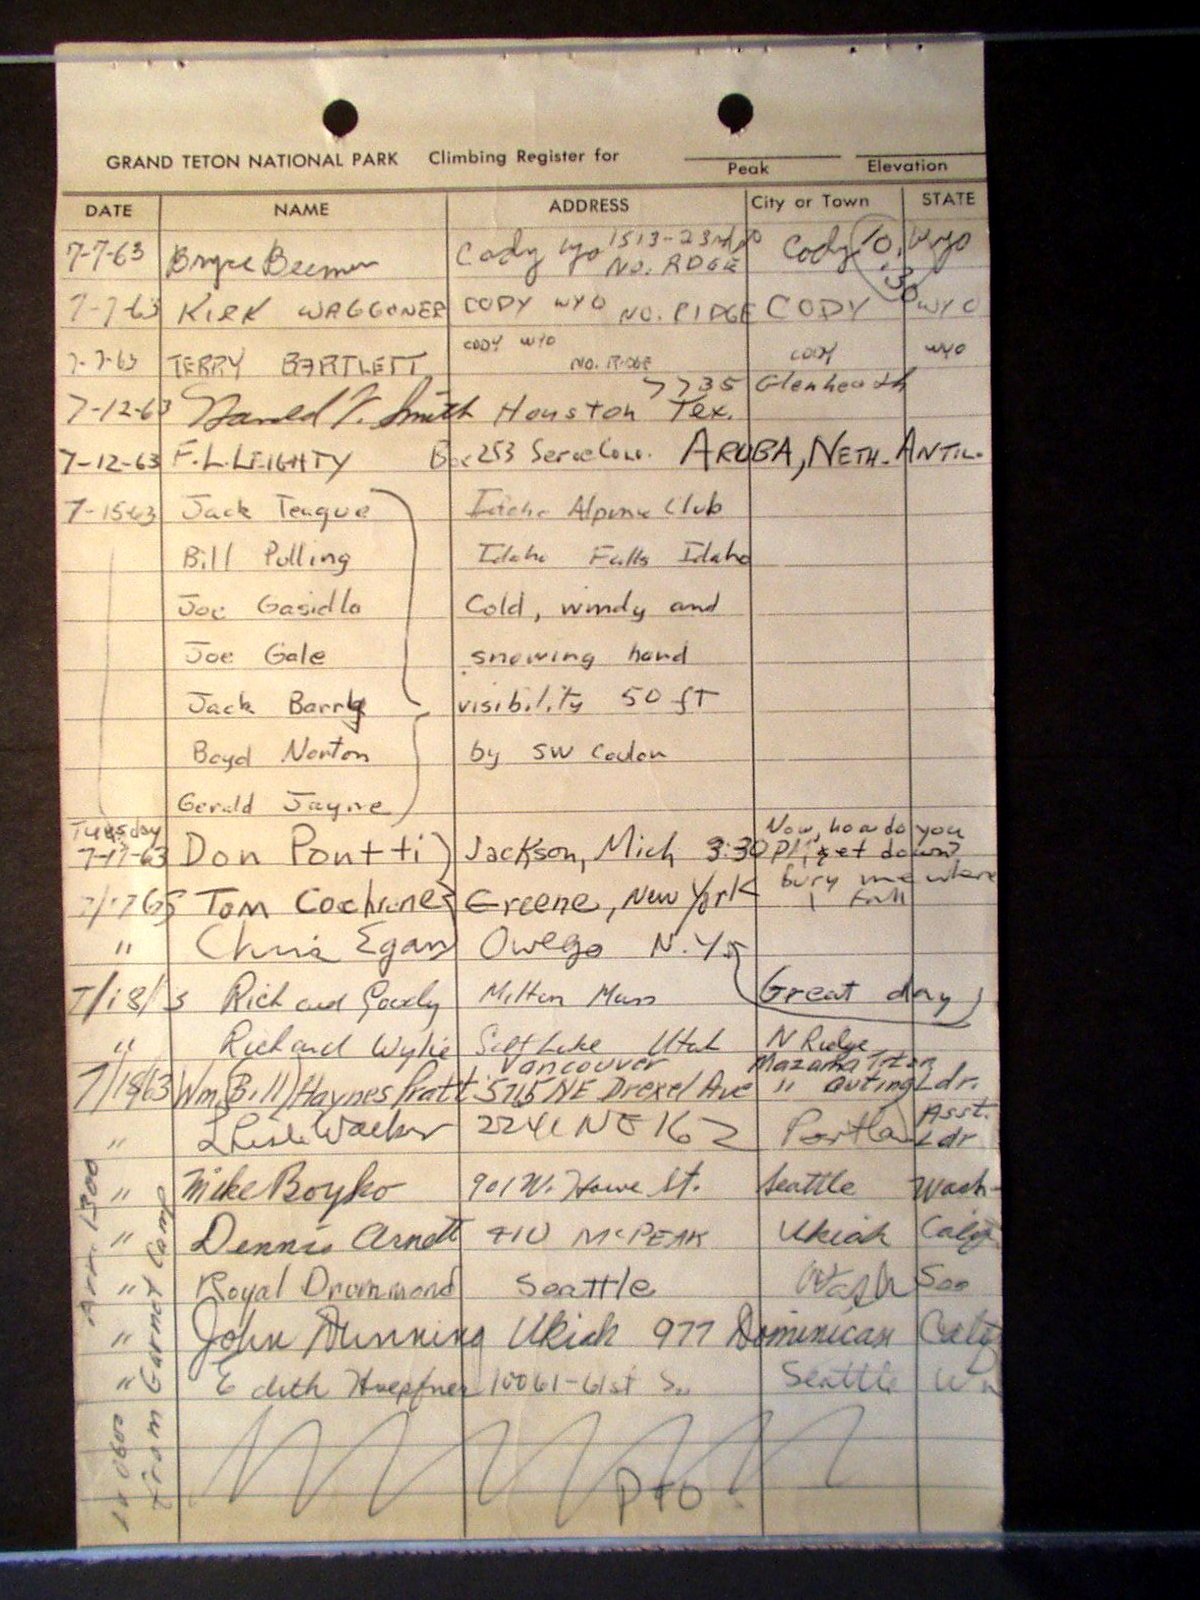 GRAND TETON NATIONAL PARK Climbing Register for
Peak Elevation
DATE NAME ADDRESS City or Town STATE
7-7-63 Bryce Beeman Cody Wyo 1513-23rd NO. RDGE Cody 10:30 Wyo
7-7-63 KIRK WAGGONER CODY WYO NO. RIDGE CODY WYO
7-7-63 TERRY BARTLETT CODY WYO NO. RIDGE CODY WYO
7-12-63 Harold F. Smith Houston Tex. 7735 Glenheath
7-12-63 F.L. LEIGHTY Box 253 ARUBA, NETH. ANTIL.
7-15-63 Jack Teague Idaho Alpine Club
Bill Polling Idaho Falls Idaho
Joe Gasidlo Cold, windy and
Joe Gale snowing hard
Jack Barry visibility 50 ft
Boyd Norton by SW
Gerald Jayne
Tuesday
7-17-63 Don Pontti Jackson, Mich 3:30 P Now, how do you get down?
7/17 63 Tom Cochrane Greene, New York bury me where I fall
" Chris Egan Owego N.Y.
7/18/ Richard Milton Mass Great day
" Richard Wylie Salt Lake Utah N Ridge
7/18/63 Wm (Bill) Haynes Pratt 5715 NE Drexel Ave Vancouver Mazama Teton " outing Ldr.
" Leslie Walker NE 162 Portland Asst. Ldr
" Mike Boyko 901 W. Howe St. Seattle Wash-
" Dennis Arnott 710 McPEAK Ukiah Calif
" Royal Drummond Seattle Wash
" John Dunning Ukiah 977 Dominican Calif
" Edith Hoepfner 10061-61st So. Seattle Wn
Arr. 1300
Lv 0600
from Garnet Camp
PTO